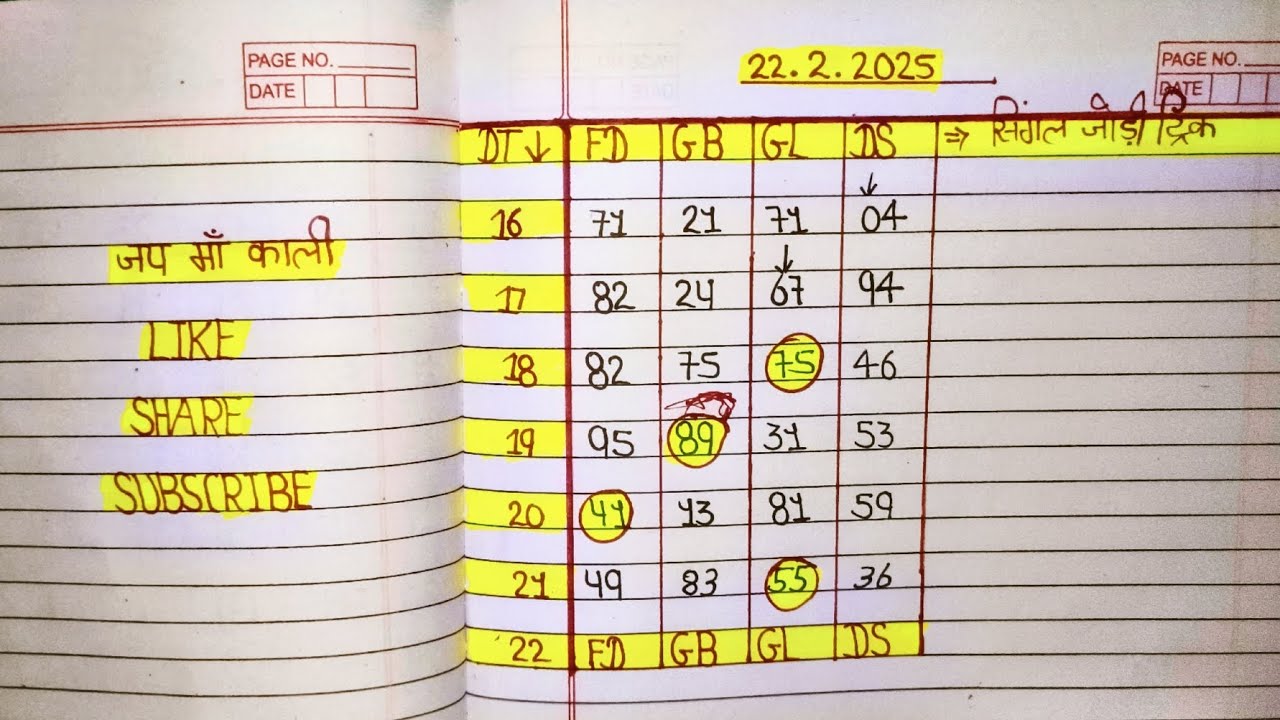 PAGE NO.
DATE
जय माँ काली
LIKE
SHARE
SUBSCRIBE
22.2.2025
PAGE NO.
DATE
DT ↓ FD GB GL DS ⇒ सिंगल जोड़ी ट्रिक
↓
16 71 21 71 04
↓
17 82 24 67 94
18 82 75 75 46
19 95 89 31 53
20 41 13 81 59
21 49 83 55 36
22 FD GB GL DS